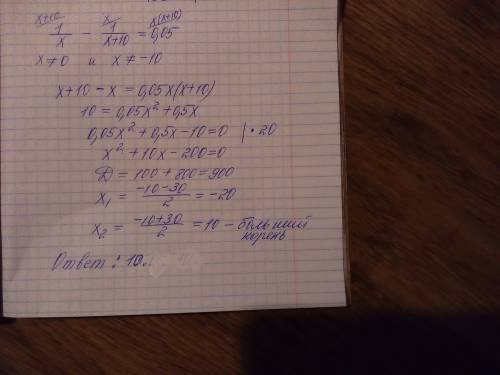 x+10   x   x(x+10)
1/x - 1/(x+10) = 0,05
x≠0 и x≠-10
x+10-x=0,05x(x+10)
10=0,05x²+0,5x
0,05x²+0,5x-10=0 |·20
x²+10x-200=0
D=100+800=900
x₁=(-10-30)/2=-20
x₂=(-10+30)/2=10 - больший корень
Ответ: 10.